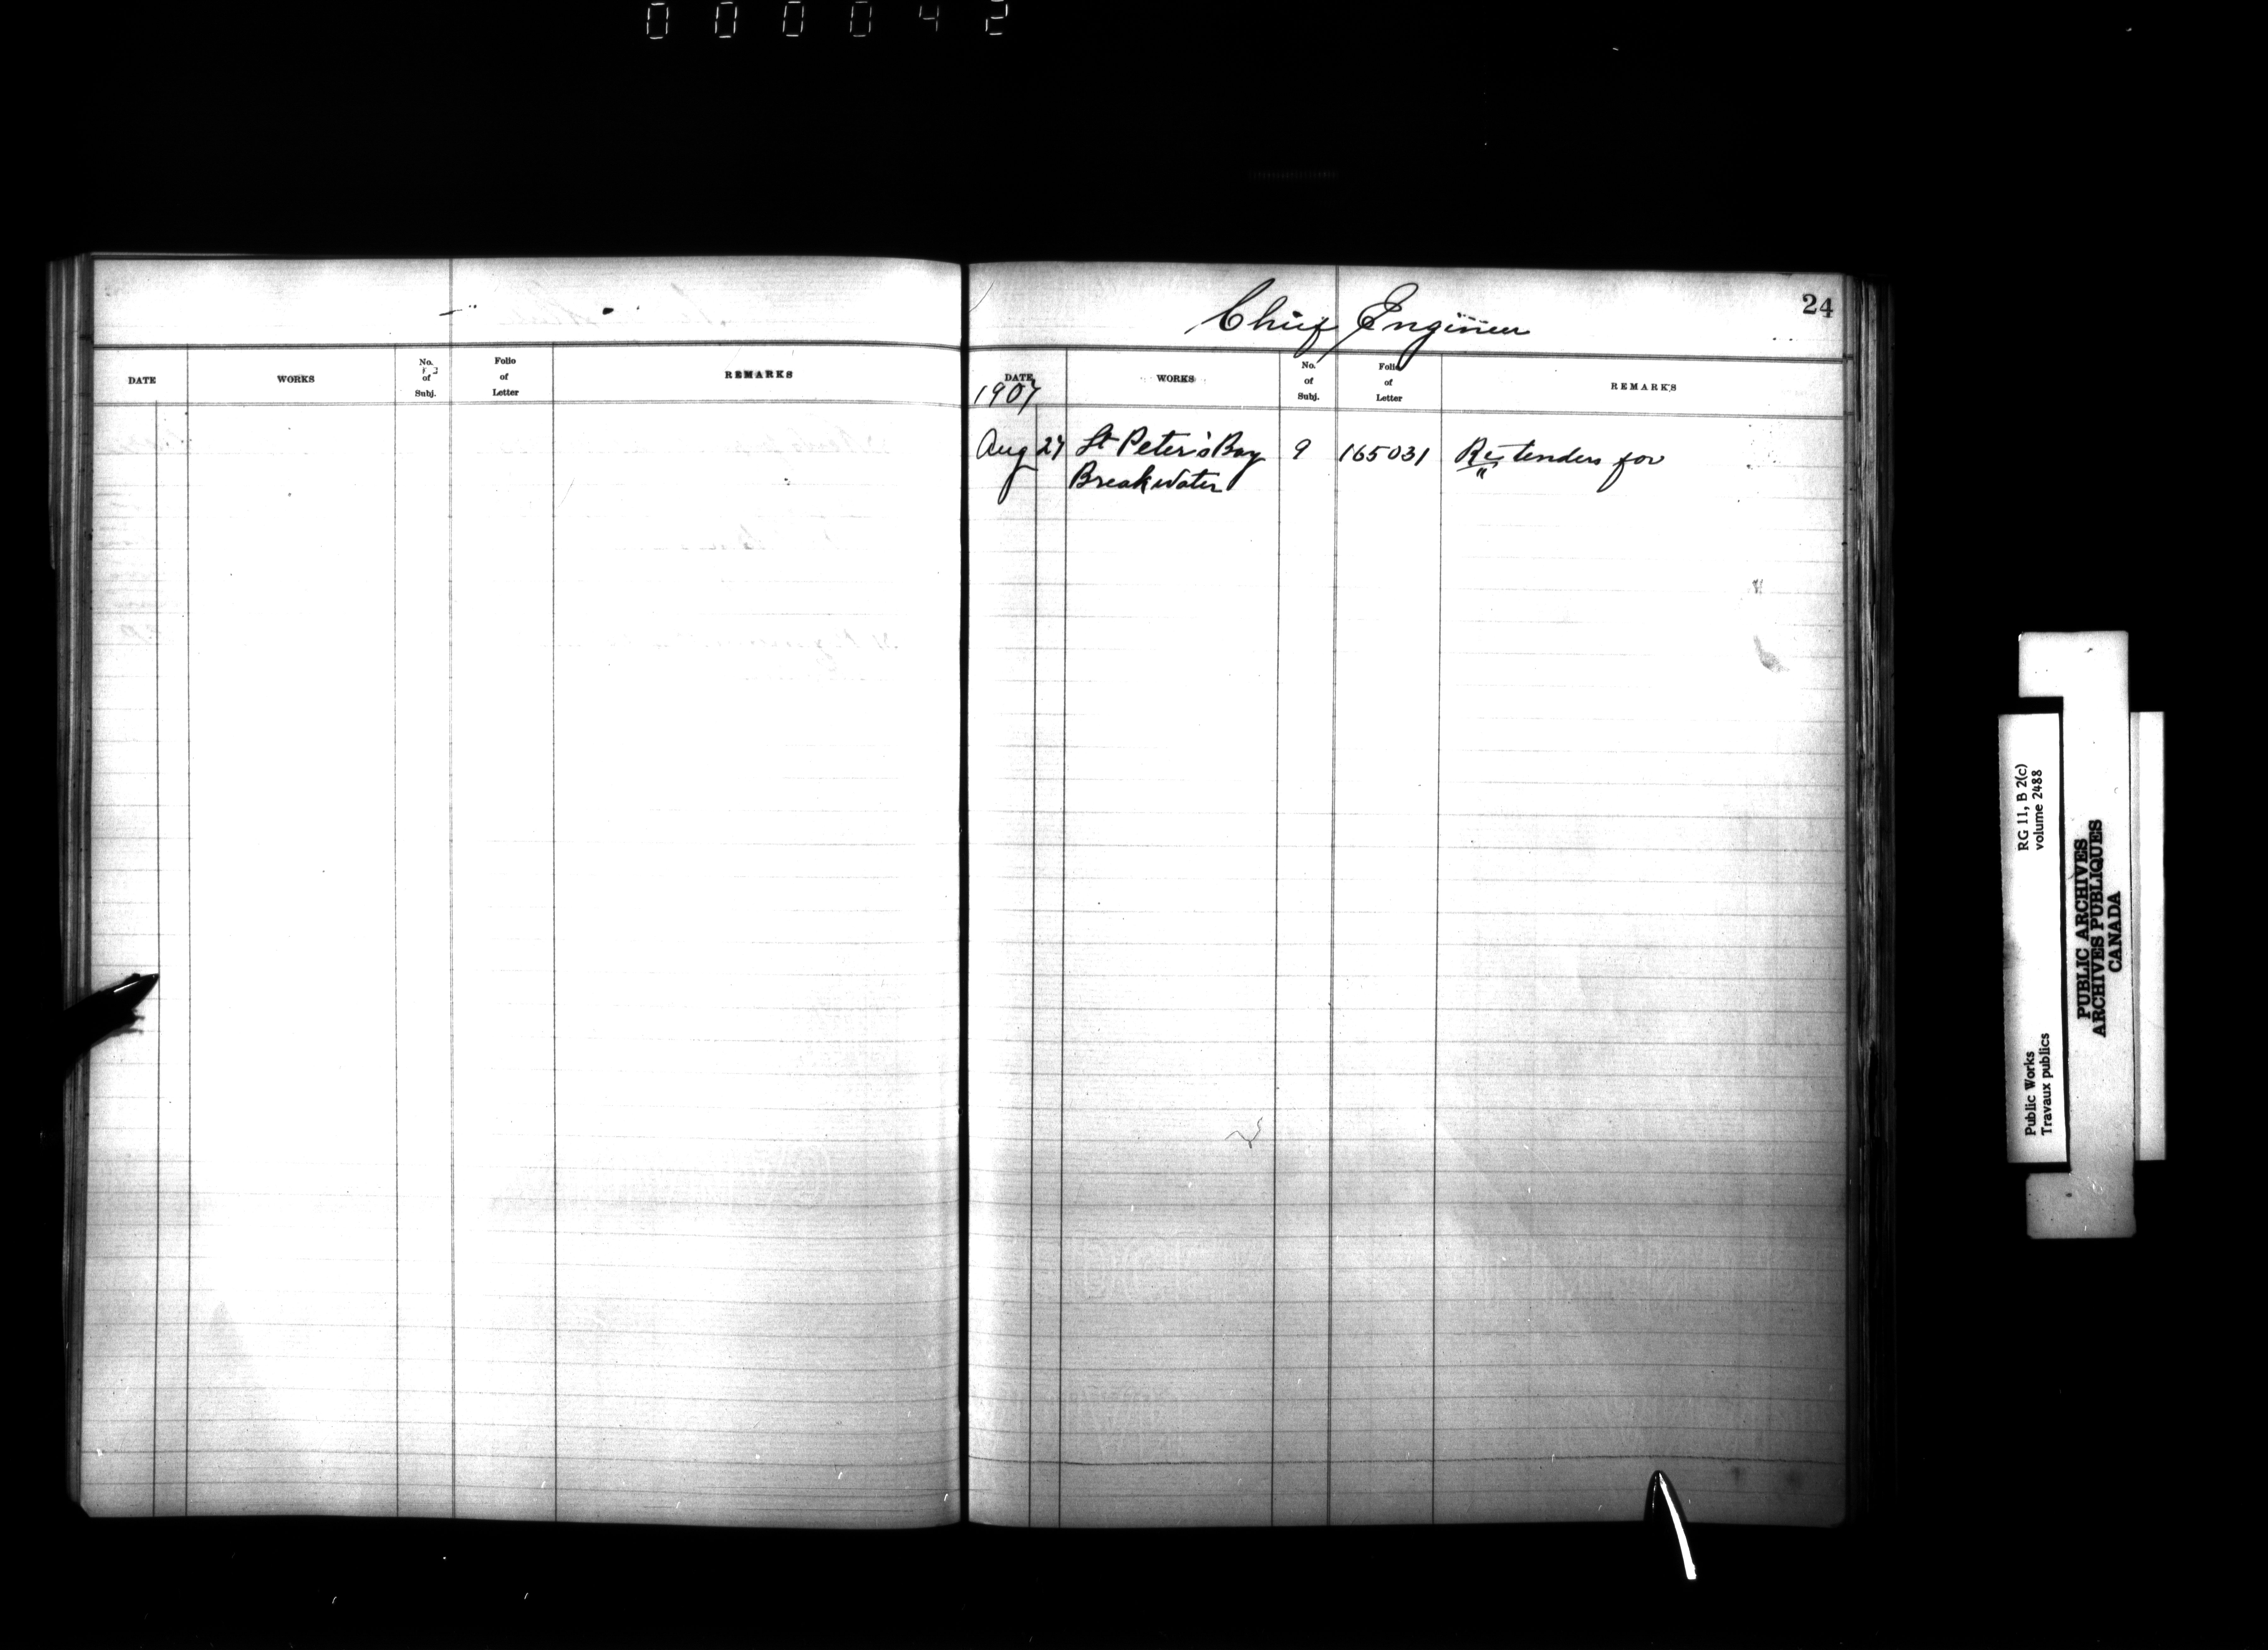 000042
DATE WORKS No. of Subj. Folio of Letter REMARKS
Chief Engineer 24
DATE WORKS No. of Subj. Folio of Letter REMARKS
1907
Aug 27 St Peter's Bay 9 165031 Re tenders for
Breakwater "
RG 11, B 2(c)
volume 2488
Public Works
Travaux publics
PUBLIC ARCHIVES
ARCHIVES PUBLIQUES
CANADA